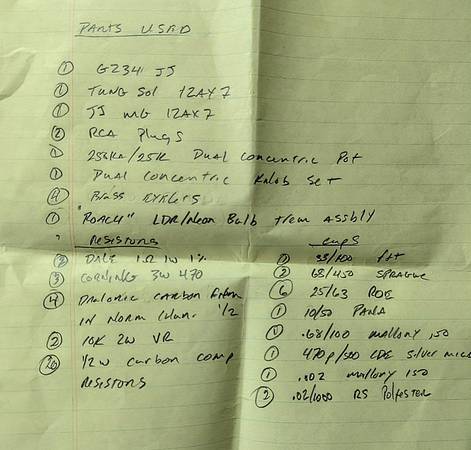 PARTS USED
① GZ34 JJ
① TUNG SOL 12AX7
① JJ MG 12AX7
② RCA Plugs
① 250KA/25K Dual Concentric Pot
① Dual Concentric Knob Set
④ Brass EYELETS
① "ROACH" LDR/Neon Bulb trem Assbly
RESISTORS
② DALE 1Ω 1W 1%
③ CORNING 3W 470
④ carbon
IN 1/2
② 10K 2W VR
⑳ 1/2W carbon comp
RESISTORS
CAPS
35/100 F&T
② 68/450 SPRAGUE
⑥ 25/63 ROE
① 10/50 PANA
① .68/100 mallory 150
① 470p/500 CDE Silver mica
① .002 mallory 150
② .02/1000 RS Polyester